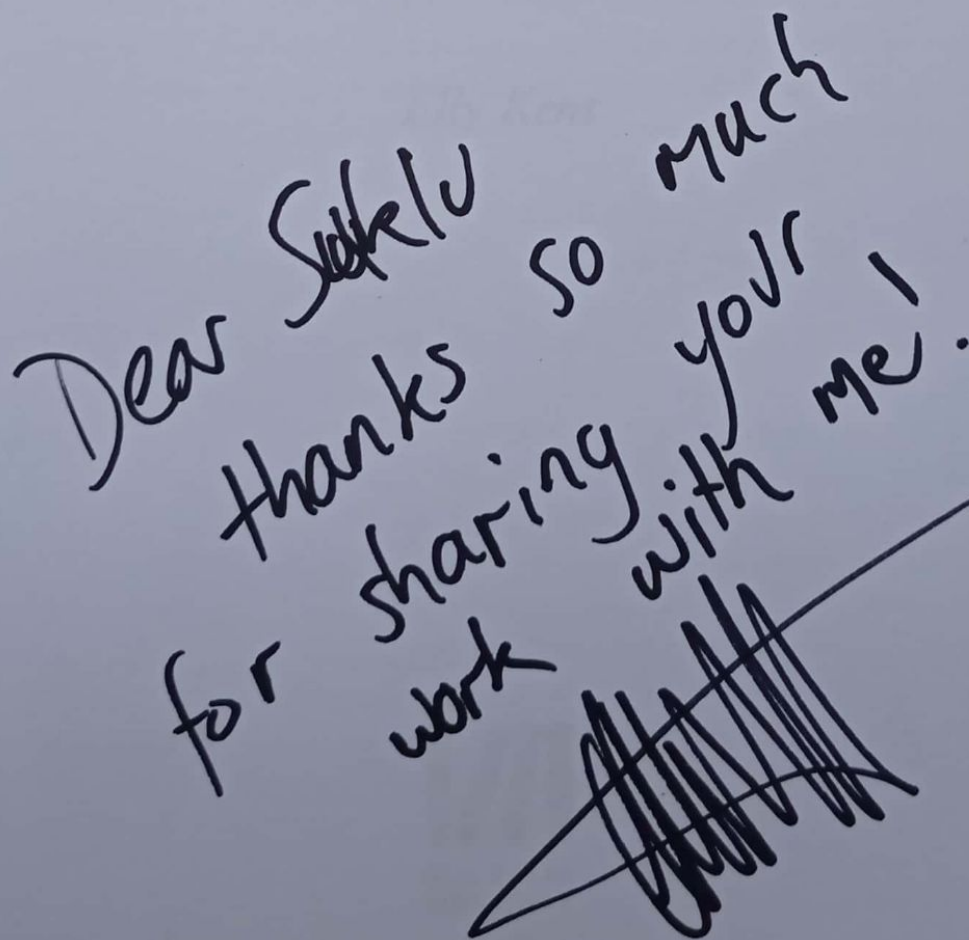 Dear
thanks so much
for sharing your
work with me!